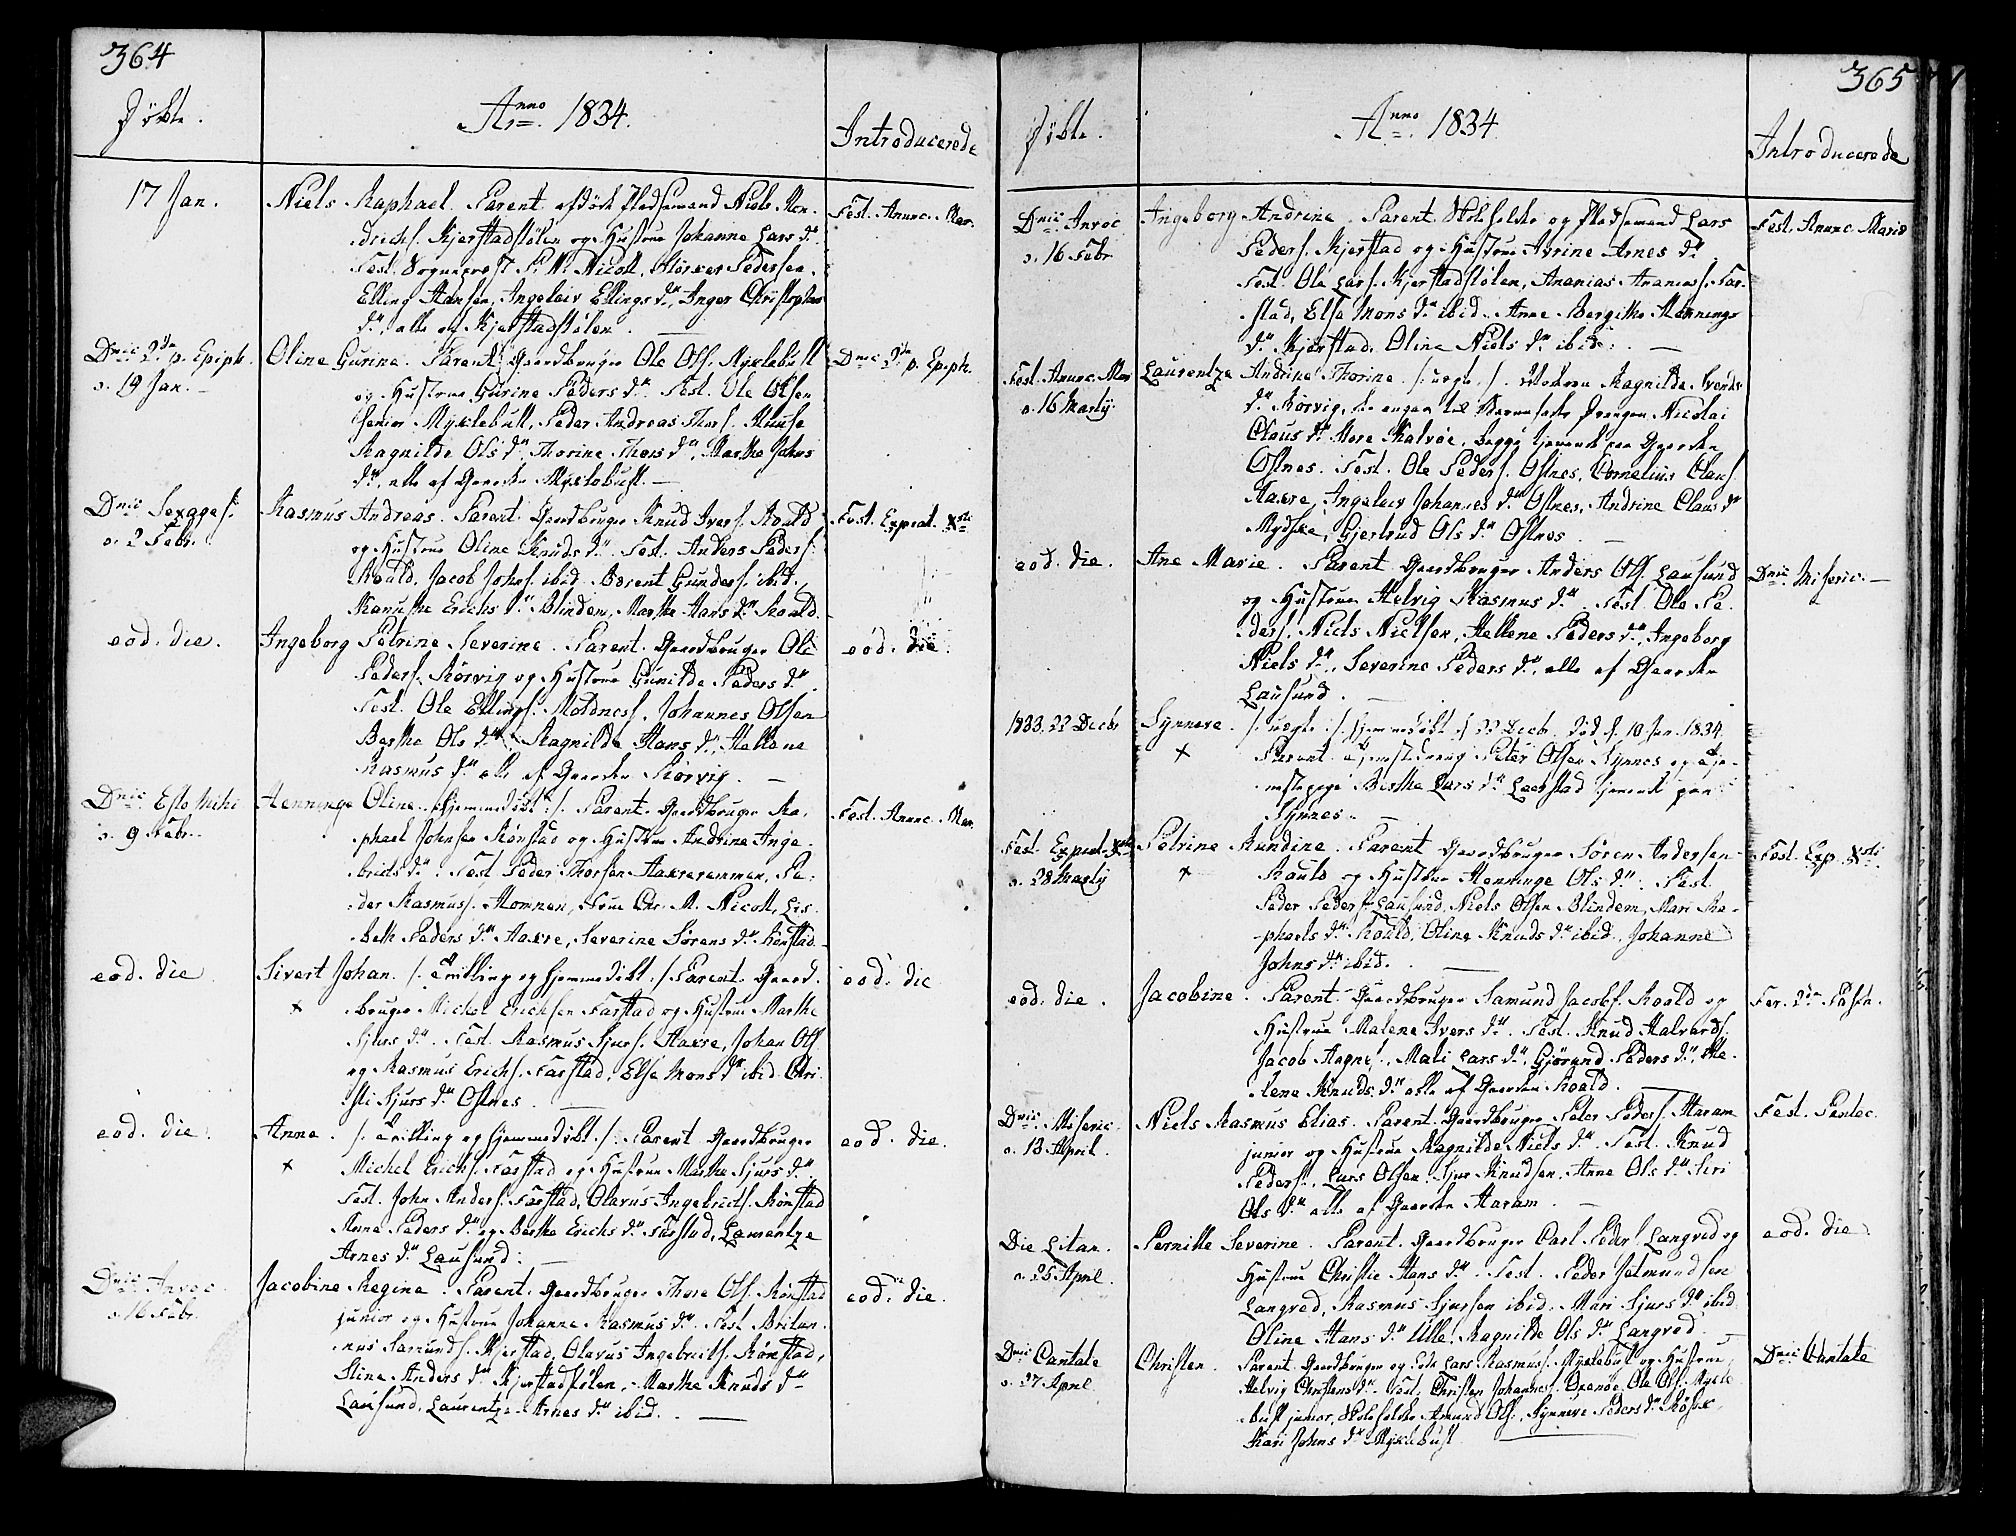 364
Døbte.
Anno 1834.
Introducerede
17 Jan.
Niels Raphael. Parent. afdøde Pladsemand Niels Hen-
drichs. Kjerstadstølen og Hustrue Johanne Lars dr.
Test. Sogneprest P. N. Nicoll, Størker Pedersen,
Elling Hansen, Ingeleiv Ellings dr, Inger Christophers
dr, alle af Kjerstadstølen.
Fest. Anunc. Mar.
Dnic 2da p. Epiph.
d. 19 Jan.
Oline Gurine. Parent. Gaardbruger Ole Ols. Myklebust
og Hustrue Gurine Peders dr. Test. Ole Olsen
senior Myklebust, Peder Andreas Thors. Huuse
Ragnilde Ols dr, Thorine Thors dr, Marthe Johns
dr, alle af Gaarden Myklebust.
Dnic 2da p. Epiph.
Dnic Sexages.
d. 2 Febr.
Rasmus Andreas. Parent. Gaardbruger Knud Ivers. Roald
og Hustrue Oline Knuds dr. Test. Anders Peders.
Roald, Jacob Johns. ibid. Berent Gunders. ibid.
Kanutke Erichs dr Blindem, Marthe Hans dr Roald.
Fest. Expect. Xsti
eod. die.
Ingeborg Petrine Severine. Parent. Gaardbruger Ole
Peders. Rørvig og Hustrue Gunilde Peders dr.
Test. Ole Ellings. Moldnes, Johannes Olsen
Berthe Ols dr, Ragnilde Hans dr, Hellene
Rasmus dr alle af Gaarden Rørvig.
eod. die.
Dnic Esto Mihi
d. 9 Febr.
Henninge Oline. /: hjemmedøbt :/. Parent. Gaardbruger Ra-
phael Johnsen Rønstad og Hustrue Andrine Inge-
brits dr. Test. Peder Thorsen Haxreremmen, Pe-
der Rasmus. Homnen, Frue Chr. M. Nicoll, Lis-
beth Peders dr Haxre, Severine Sørens dr Rønstad.
Fest. Anunc. Mar.
eod. die
Sivert Johan. /: Tvilling og hjemmedøbt :/ Parent. Gaard-
× bruger Michel Erichsen Farstad og Hustrue Marthe
Sjurs dr. Test. Rasmus Sjurs. Haxre, Johan Ols.
og Rasmus Erichs. Farstad, Else Mons dr ibid. Chri-
sti Sjurs dr Ostnes.
eod. die
eod. die.
Anne. /: Tvilling og hjemmedøbt :/. Parent. Gaardbruger
× Michel Erichs. Farstad og Hustrue Marthe Sjurs dr.
Test. John Anders. Farstad, Olavus Ingebrits. Rønstad
Anne Peders dr og Berthe Erichs dr Farstad, Laurentze
Arnes dr Lausund.
eod. die.
Dnic Invoc.
d. 16 Febr.
Jacobine Regine. Parent. Gaardbruger Thore Ols. Rønstad
junior og Hustrue Johanne Rasmus dr. Test. Britan-
nus Samunds. Kjerstad, Olavus Ingebrits. Rønstad,
Stine Anders dr Kjerstadstølen, Marthe Knuds dr
Lausund, Laurentze Arnes dr ibid.
eod. die.
365
Døbte.
Anno 1834
Introducerede
Dnic Invoc
d. 16 Febr
Ingeborg Andrine. Parent. Skoleholder og Pladsemand Lars
Peders. Kjerstad og Hustrue Avrine Arnes dr.
Test. Ole Lars. Kjerstadstølen, Ananias Ananias. Far-
stad, Else Mons dr ibid. Anne Bergithe Hennings
dr Kjerstad, Oline Niels dr ibid.
Fest. Anunc. Mariæ
Fest. Anunc. Mar
d. 16 Martij.
Laurentze Andrine Thorine. /: uægte :/. Moderen Magnilde Svends
dr Rørvig, han angav til Barnefader Drengen Nicolai
Claus dr Store Kalvøe, begge tjenende paa Gaarden
Ostnes. Test. Ole Peders. Ostnes, Cornelius Claus.
Haxre, Ingeleiv Johannes dr Ostnes, Andrine Claus dr
Rydske, Gjertrud Ols dr Ostnes
eod. die.
Ane Marie. Parent Gaardbruger Anders Ols. Lausund
og Hustrue Helvig Rasmus dr. Test. Ole Pe-
ders. Niels Nielsen, Hellene Peders dr, Ingeborg
Niels dr, Severine Peders dr, alle af Gaarden
Lausund.
Dnic Miseric.
1833. 22 Decbr
Synneve. /: uægte :/. hjemmedøbt d. 22 Decb. død d. 10 Jan. 1834
× Parent. Tjenestedreng Peter Olsen Synnes og Tje-
nestepige Berthe Lars dr Lærstad tjenende paa
Synnes.
Fest. Expect. Xsti
d. 28 Martij
Petrine Randine. Parent Gaardbruger Søren Andersen
× Roald og Hustrue Henninge Ols dr. Test.
Peder Peders. Lausund, Niels Olsen Blindem, Mari Ra-
phaels dr Roald, Oline Knuds dr ibid. Johanne
Johns dr ibid.
Fest. Exp. Xsti
eod. die.
Jacobine. Parent. Gaardbruger Samund Jacobs. Roald og
Hustrue Malene Ivers dr. Test. Knud Halvards.
Jacob Aagne., Mali Lars dr, Gjørund Peders dr, Ma-
lene Knuds dr alle af Gaarden Roald.
Fer. 2da Pasch.
Dnic. Miseric.
d. 13 April.
Niels Rasmus Elias. Parent. Gaardbruger Peter Peders. Haram
junior og Hustrue Ragnilde Niels dr. Test. Knud
Peders., Lars Olsen, Sjur Knudsen, Anne Ols dr Siri
Ols dr alle af Gaarden Haram.
Fest. Pentec.
Die Litan.
d. 25 April.
Pernille Severine. Parent. Gaardbruger Carl Peders. Langved og
Hustrue Christie Hans dr. Test. Peder Jetmundsen
Langved, Rasmus Sjursen ibid. Mari Sjurs dr ibid.
Oline Hans dr Ulle, Ragnilde Ols dr Langved.
eod. die
Dnic Cantate
d. 27 April.
Christen. Parent. Gaardbruger og Lods Lars Rasmus. Myklebust og Hustrue
Helvig Christens dr. Test. Christen Johannes. Oxenøe, Ole Ols. Mykle-
bust junior, Skoleholder Amund Ols., Synneve Peders dr Røsok,
Kari Johns dr Myklebust
Dnic Cantate